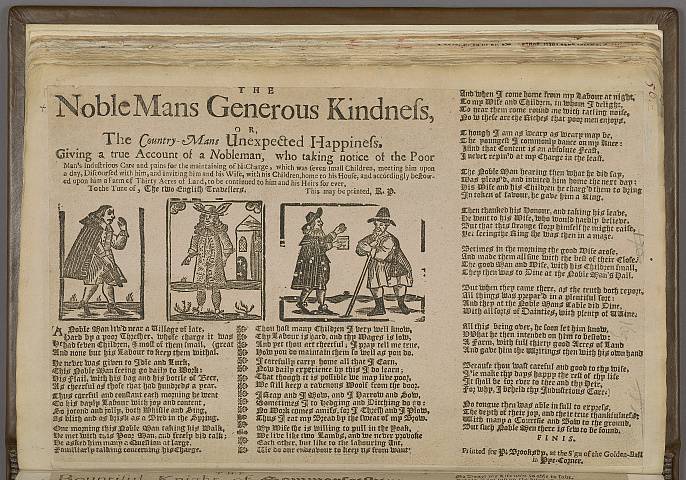 THE
Noble Mans Generous Kindness,
OR,
The Country-Mans Unexpected Happiness.
Giving a true Account of a Nobleman, who taking notice of the Poor
Man's industrious Care and pains for the maintaining of his Charge, which was seven small Children, meeting him upon
a day, Discoursed with him, and inviting him and his Wife, with his Children, home to his House, and accordingly bestow-
ed upon him a Farm of Thirty Acres of Land, to be continued to him and his Heirs for ever,
To the Tune of, The two English Travellers. This may be printed, R. P.
A Noble Man liv'd near a Village of late,
Hard by a poor Thresher, whose charge it was
He had seven Children, I most of them small, (great
And none but his Labour to keep them withal.
He never was given to Idle and Lurk,
This Noble Man seeing go daily to Work;
His Flail, with his bag and his bottle of Beer,
As cheerful as those that had hundreds a year.
Thus careful and constant each morning he went
To his daily Labour with joy and content,
So jocond and jolly, both Whistle and Sing,
As blith and as brisk as a Bird in the Spring.
One morning this Noble Man taking his Walk,
He met with this Poor Man, and freely did talk;
He asked him many a Question at large,
Familiarly talking concerning his Charge.
Thou hast many Children I very well know,
Thy Labour is hard, and thy Wages is low,
And yet thou art cheerful; I pray tell me true,
How you do maintain them so well as you do.
I carefully carry home all that I Earn,
Now daily experience by this I do learn;
That though it is possible we may live poor,
We still keep a ravenous Woolf from the door.
I Reap and I Mow, and I Harrow and Sow,
Sometimes I to Hedging and Ditching do go;
No Work comes amiss, for I Thresh and I Plow,
Thus I eat my Bread by the sweat of my Brow.
My Wife she is willing to pull in the Yoak,
We live like two Lambs, and we never provoke
Each other, but like to the labouring Ant,
We do our endeavour to keep us from want.
And when I come home from my Labour at night,
To my Wife and Children, in whom I delight,
To near them come round me with tatling noise,
Now these are the Riches that poor men enjoys.
Though I am as weary as weary may be,
The youngest I commonly dance on my Knee:
I find that content is an absolute Feast,
I never repin'd at my Charge in the least.
The Noble Man hearing then what he did say,
Was pleas'd, and invited him home the next day;
His Wife and his Children he charg'd them to bring
In token of favour, he gave him a Ring.
Then thanked his Honour, and taking his leave,
He went to his Wife, who would hardly believe.
But that this strange story himself he might raise,
Yet seeing the Ring she was then in a maze.
Betimes in the morning the good Wife arose,
And made them all fine with the best of their Close,
The good Man and Wife, with his Children small,
They then was to Dine at the Noble Man's Hall.
But when they came there, as the truth doth report,
All things was prepar'd in a plentiful sort:
And they at the Noble Mans Table did Dine,
With all sorts of Dainties, with plenty of Wine.
All this being over, he soon let him know,
What he then intended on him to bestow:
A Farm, with full thirty good Acres of Land
And gave him the Writings then with his own hand
Because thou wast careful and good to thy wife,
I'le make thy days happy the rest of thy life
It shall be for ever to thee and thy Heir,
For why, I beheld thy Industrious Care.
No tongue then was able in full to express,
The depth of their joy, and their true thankfulness:
With many a Courtsie and Bow to the ground,
But such Noble Men there is few to be found.
FINIS.
Printed for P. Brooksby, at the Sign of the Golden-Ball
in Pye-Corner.